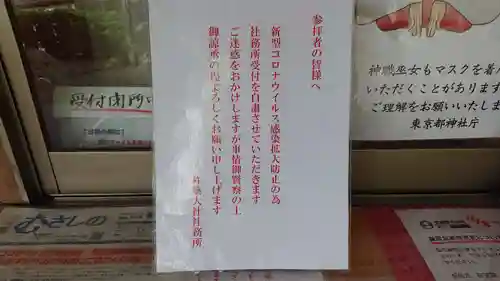 参拝者の皆様へ
新型コロナウイルス感染拡大防止の為
社務所受付を自粛させていただきます
ご迷惑をおかけしますが事情御賢察の上
御諒承の程よろしくお願い申し上げます
大社社務所
神職巫女もマスクを着
いただくことがあります
ご理解をお願いいたしま
東京都神社庁
むさしの